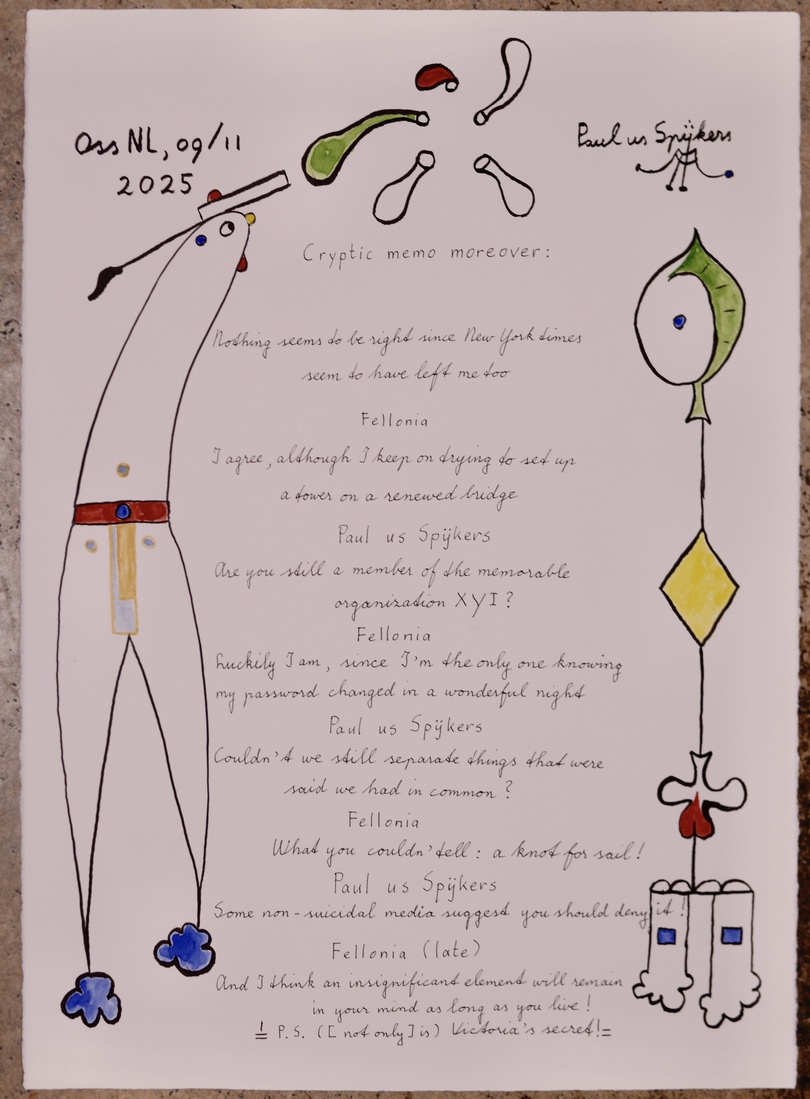 Oss NL, 09/11
2025
Paul us Spijkers
Cryptic memo moreover:
Nothing seems to be right since New York times
seem to have left me too
Fellonia
I agree, although I keep on trying to set up
a tower on a renewed bridge
Paul us Spijkers
Are you still a member of the memorable
organization XYI?
Fellonia
Luckily I am, since I'm the only one knowing
my password changed in a wonderful night
Paul us Spijkers
Couldn't we still separate things that were
said we had in common?
Fellonia
What you couldn'tell: a knot for sail!
Paul us Spijkers
Some non-suicidal media suggest you should deny it!
Fellonia (late)
And I think an insignificant element will remain
in your mind as long as you live!
! P.S. ([not only] is) Victoria's secret!=